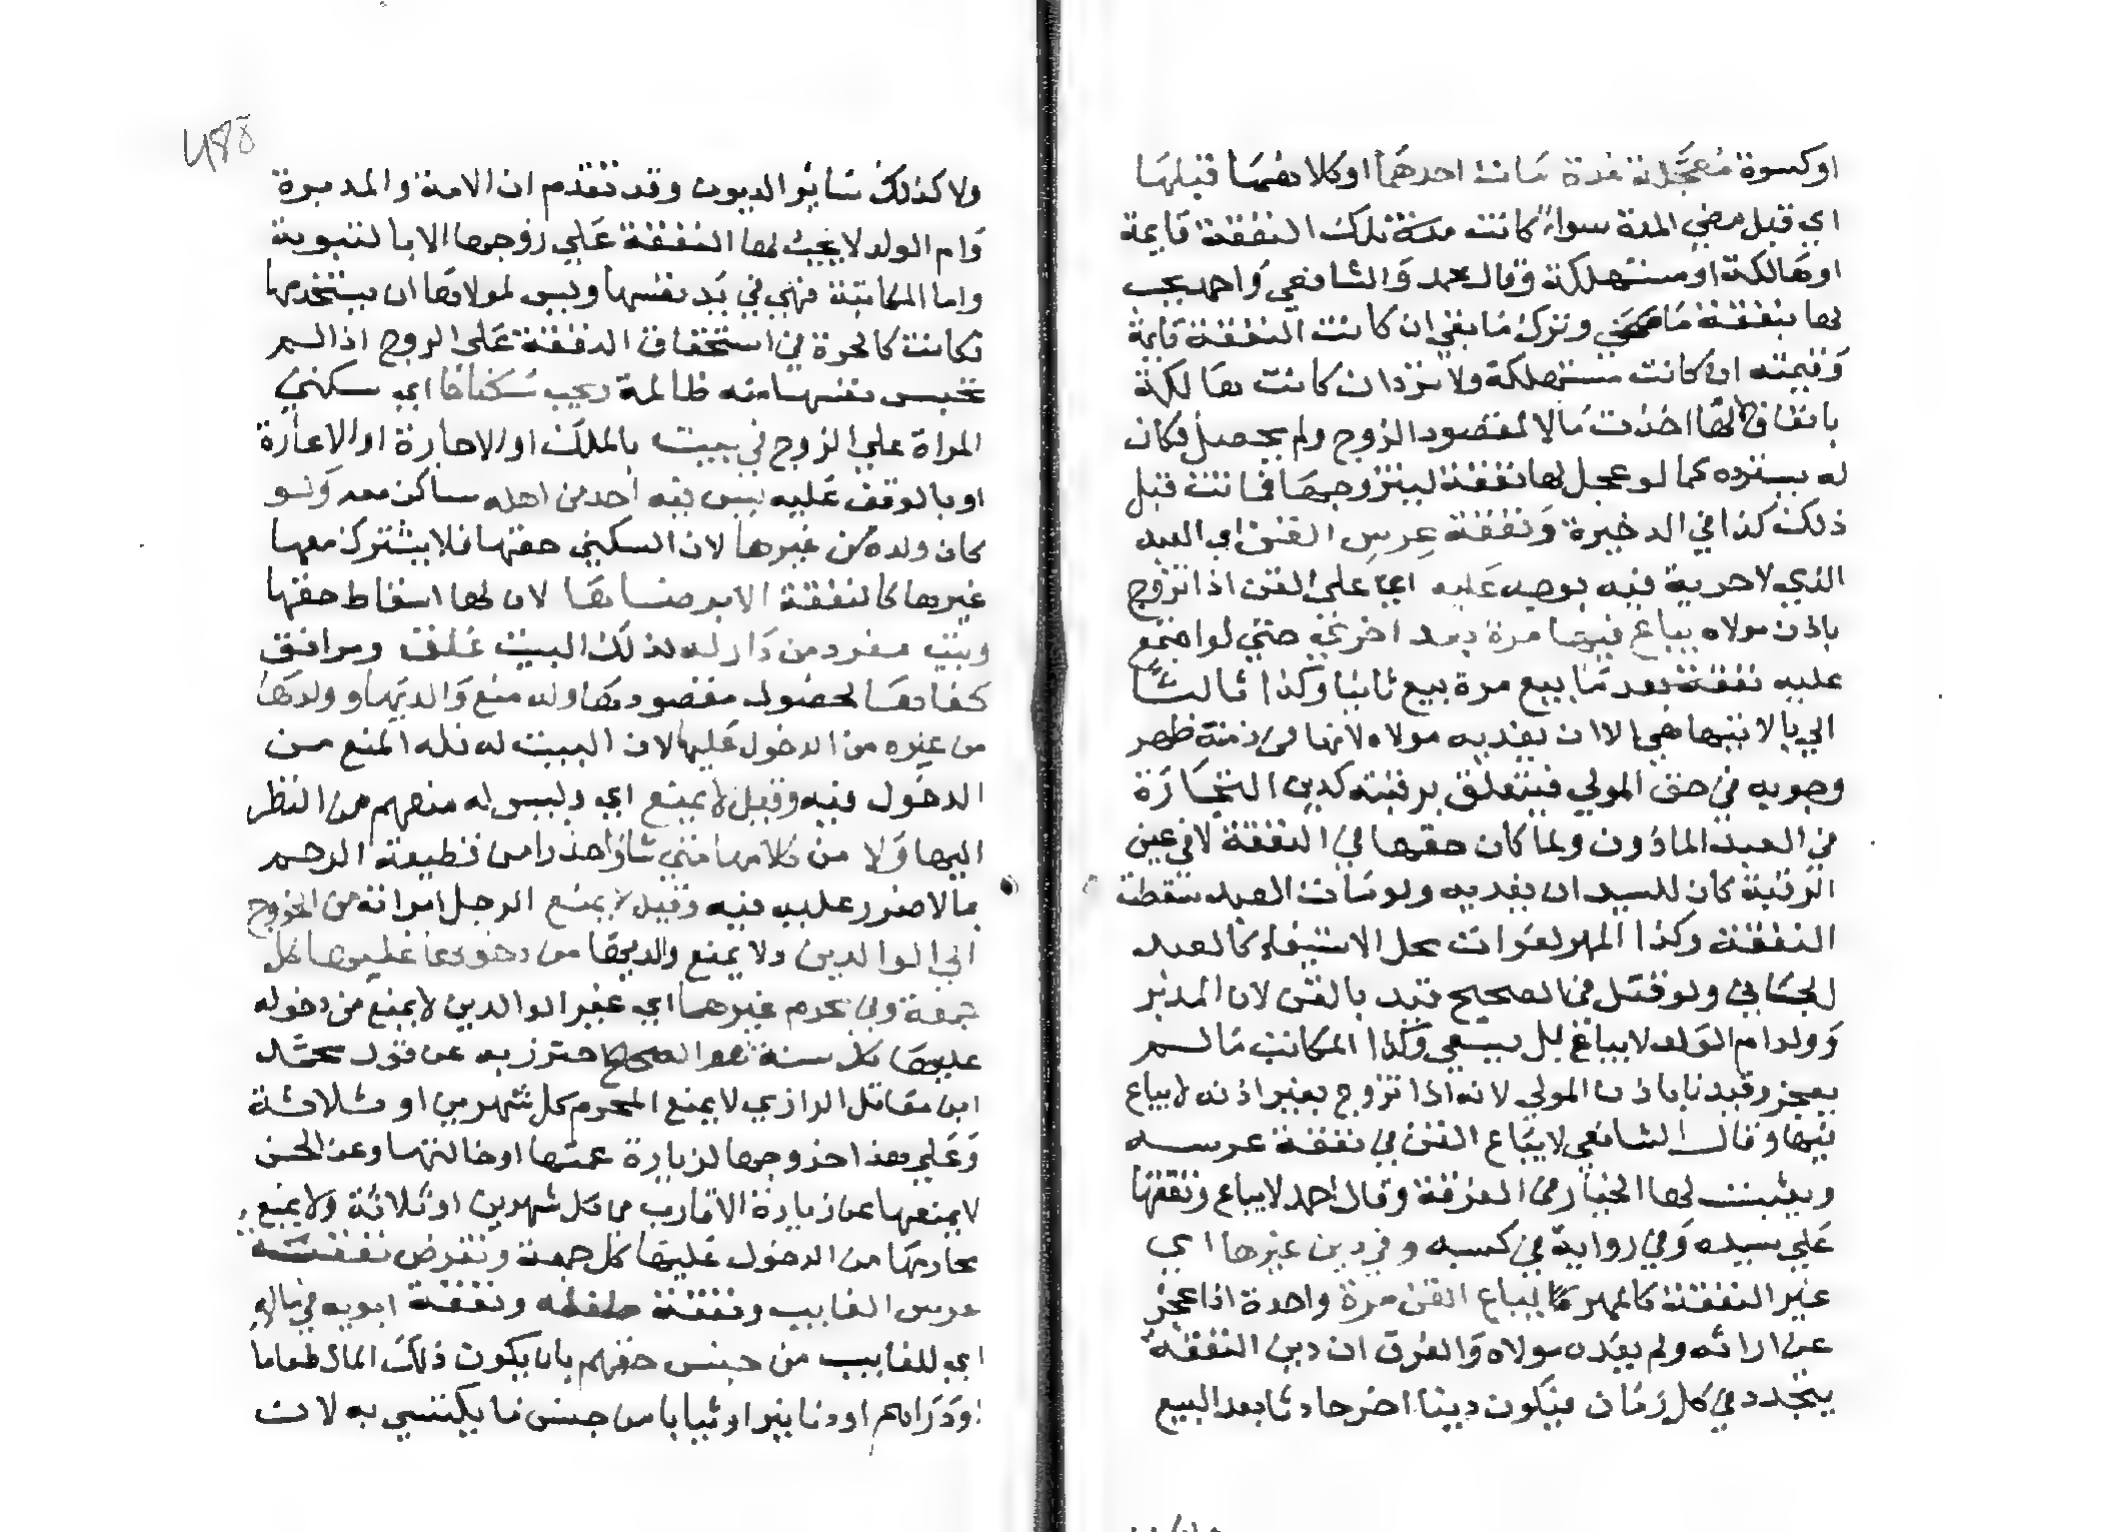 او كسوة معجلة مدة مات احدهما او كلاهما قبلها
اي قبل مضي المدة سواء كانت مدة تلك النفقة قايمة
او هالكة او مستهلكة وقال محمد والشافعي واحمد يجب
لها نفقة ما مضي وترك ما بقي ان كانت النفقة قايمة
وقيمته ان كانت مستهلكة ولا ترد ان كانت هالكة
باتفاق لانها اخذت مالا لمقصود الزوج ولم يحصل فكان
له يسترده كما لو عجل لها نفقة ليتزوجها فماتت قبل
ذلك كذا في الدخيرة ونفقة عرس القن اي العبد
الذي لا حرية فيه بوجه عليه اي علي القن اذا تزوج
باذن مولاه يباع فيها مرة بعد اخري حتي لو اجتمع
عليه نفقة بعد ما بيع مرة بيع ثانيا وكذا ثالثا
الي ما لا يتناهي الا ان يفديه مولاه لانها في ذمته ظهر
وجوبه في حق المولي فيتعلق برقبته كدين التجارة
في العبد الماذون ولما كان حقها في النفقة لا في عين
الرقبة كان للسيد ان يفديه ولو مات العبد سقطت
النفقة وكذا المهر لفوات محل الاستيفاء كالعبد
الجاني ولو قتل في الصحيح قيد بالقن لان المدبر
وولد ام الولد لا يباع بل يسعي وكذا المكاتب ما لم
يعجز وقيدنا باذن المولي لانه اذا تزوج بغير اذنه لا يباع
فيها وقال الشافعي لا يباع القن في نفقة عرسه
ويثبت لها الخيار في الفرقة وقال احمد لا يباع ونفقتها
علي سيده وفي رواية في كسبه وفي دين غيرها اي
غير النفقة كالمهر يباع القن مرة واحدة اذا عجز
عن ادائه ولم يفده مولاه والفرق ان دين النفقة
يتجدد في كل زمان فيكون دينا اخر حادثا بعد البيع
ولا كذلك سائر الديون وقد تقدم ان الامة والمدبرة
وام الولد لا يجب لها النفقة علي زوجها الا بالتبوية
واما المكاتبة فهي في يد نفسها وليس لمولاها ان يستخدمها
فكانت كالحرة في استحقاق النفقة علي الزوج اذا لم
تحبس نفسها منه ظالمة ويجب سكناها اي سكني
المراة علي الزوج في بيت بالملك او الاجارة او الاعارة
او بالوقف عليه ليس فيه احد من اهله ساكن معه ولو
كان ولده من غيرها لان السكني حقها فلا يشترك معها
غيرها كالنفقة الا برضاها لان لها اسقاط حقها
وبيت مفرد من دار له لذلك البيت غلق ومرافق
كفاها لحصول مقصودها وله منع والديها وولدها
من غيره من الدخول عليها لان البيت له فله المنع من
الدخول فيه وقيل لا يمنع اي وليس له منعهم من النظر
اليها ولا من كلامها متي شاؤا حذرا من قطيعة الرحم
مالا ضرر عليه فيه وقيل لا يمنع الرجل امراته من الخروج
الي الوالدين ولا يمنع والديها من دخولهما عليها كل
جمعة وفي محرم غيرهما اي غير الوالدين لا يمنع من دخوله
عليها كل سنة هو الصحيح احترز به عن قول محمد
ابن مقاتل الرازي لا يمنع المحرم كل شهرين او ثلاثة
وعلي هذا خروجها لزيارة عمتها او خالتها وعن الحسن
لا يمنعها عن زيارة الاقارب في كل شهرين او ثلاثة ولا يمنع
محارمها من الدخول عليها كل جمعة وتفرض نفقة
عرس الغايب ونفقة طفله ونفقة ابويه في ماله
اي للغايب من جنس حقهم بان يكون ذلك المال طعاما
او دراهم او دنانير او ثيابا من جنس ما يكتسي به لان